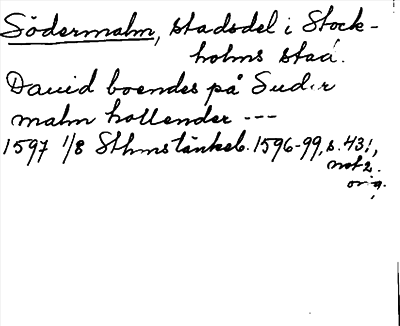 Södermalm, stadsdel i Stock-
holms stad.
Dauid boendes på Suder
malm hollender ---
1597 1/8 Sthms tänkeb. 1596-99, s. 431,
not 2.
orig.